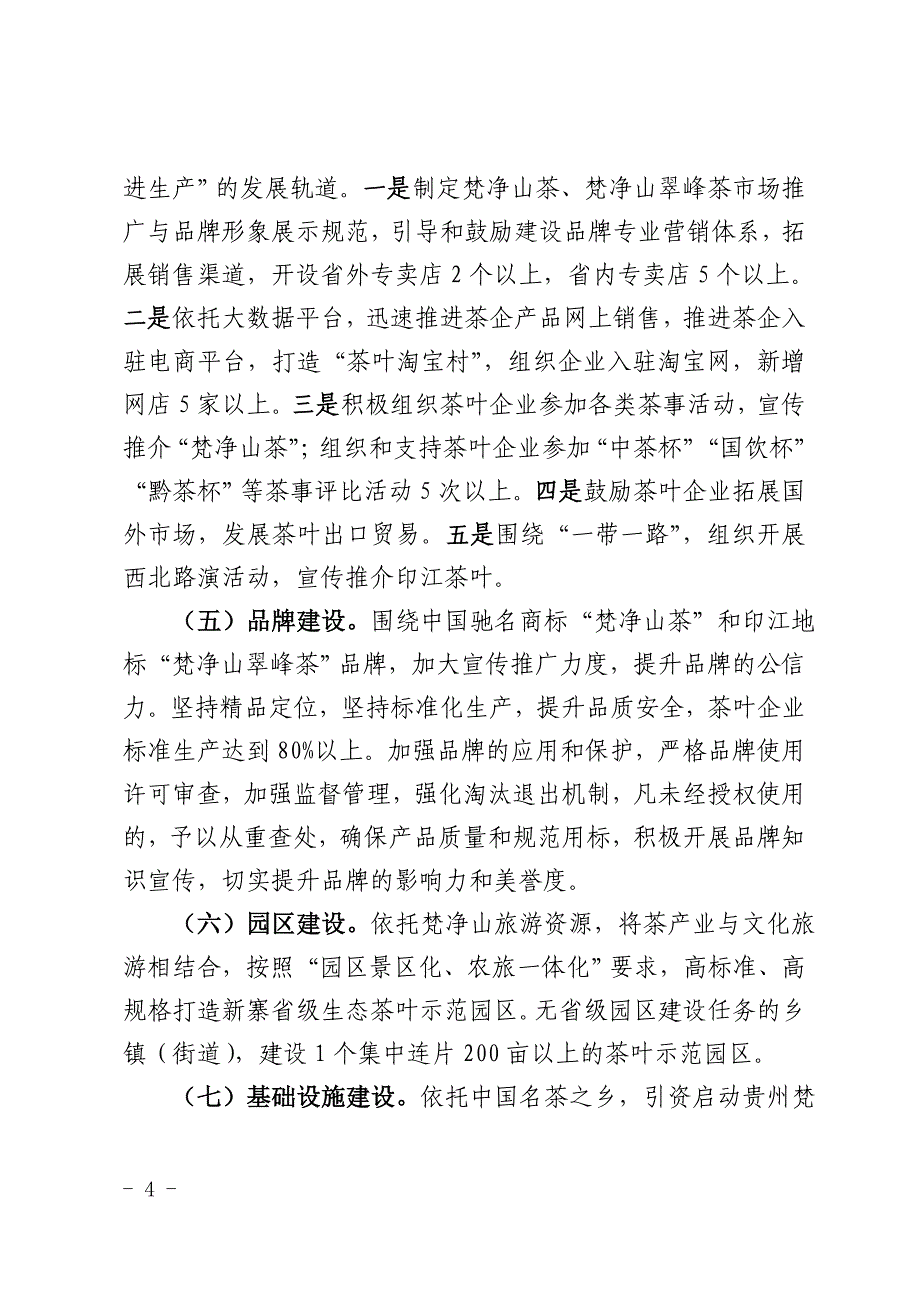 进生产”的发展轨道。一是制定梵净山茶、梵净山翠峰茶市场推
广与品牌形象展示规范，引导和鼓励建设品牌专业营销体系，拓
展销售渠道，开设省外专卖店 2 个以上，省内专卖店 5 个以上。
二是依托大数据平台，迅速推进茶企产品网上销售，推进茶企入
驻电商平台，打造“茶叶淘宝村”，组织企业入驻淘宝网，新增
网店 5 家以上。三是积极组织茶叶企业参加各类茶事活动，宣传
推介“梵净山茶”；组织和支持茶叶企业参加“中茶杯”“国饮杯”
“黔茶杯”等茶事评比活动 5 次以上。四是鼓励茶叶企业拓展国
外市场，发展茶叶出口贸易。五是围绕“一带一路”，组织开展
西北路演活动，宣传推介印江茶叶。
（五）品牌建设。围绕中国驰名商标“梵净山茶”和印江地
标“梵净山翠峰茶”品牌，加大宣传推广力度，提升品牌的公信
力。坚持精品定位，坚持标准化生产，提升品质安全，茶叶企业
标准生产达到 80%以上。加强品牌的应用和保护，严格品牌使用
许可审查，加强监督管理，强化淘汰退出机制，凡未经授权使用
的，予以从重查处，确保产品质量和规范用标，积极开展品牌知
识宣传，切实提升品牌的影响力和美誉度。
（六）园区建设。依托梵净山旅游资源，将茶产业与文化旅
游相结合，按照“园区景区化、农旅一体化”要求，高标准、高
规格打造新寨省级生态茶叶示范园区。无省级园区建设任务的乡
镇（街道），建设 1 个集中连片 200 亩以上的茶叶示范园区。
（七）基础设施建设。依托中国名茶之乡，引资启动贵州梵
- 4 -